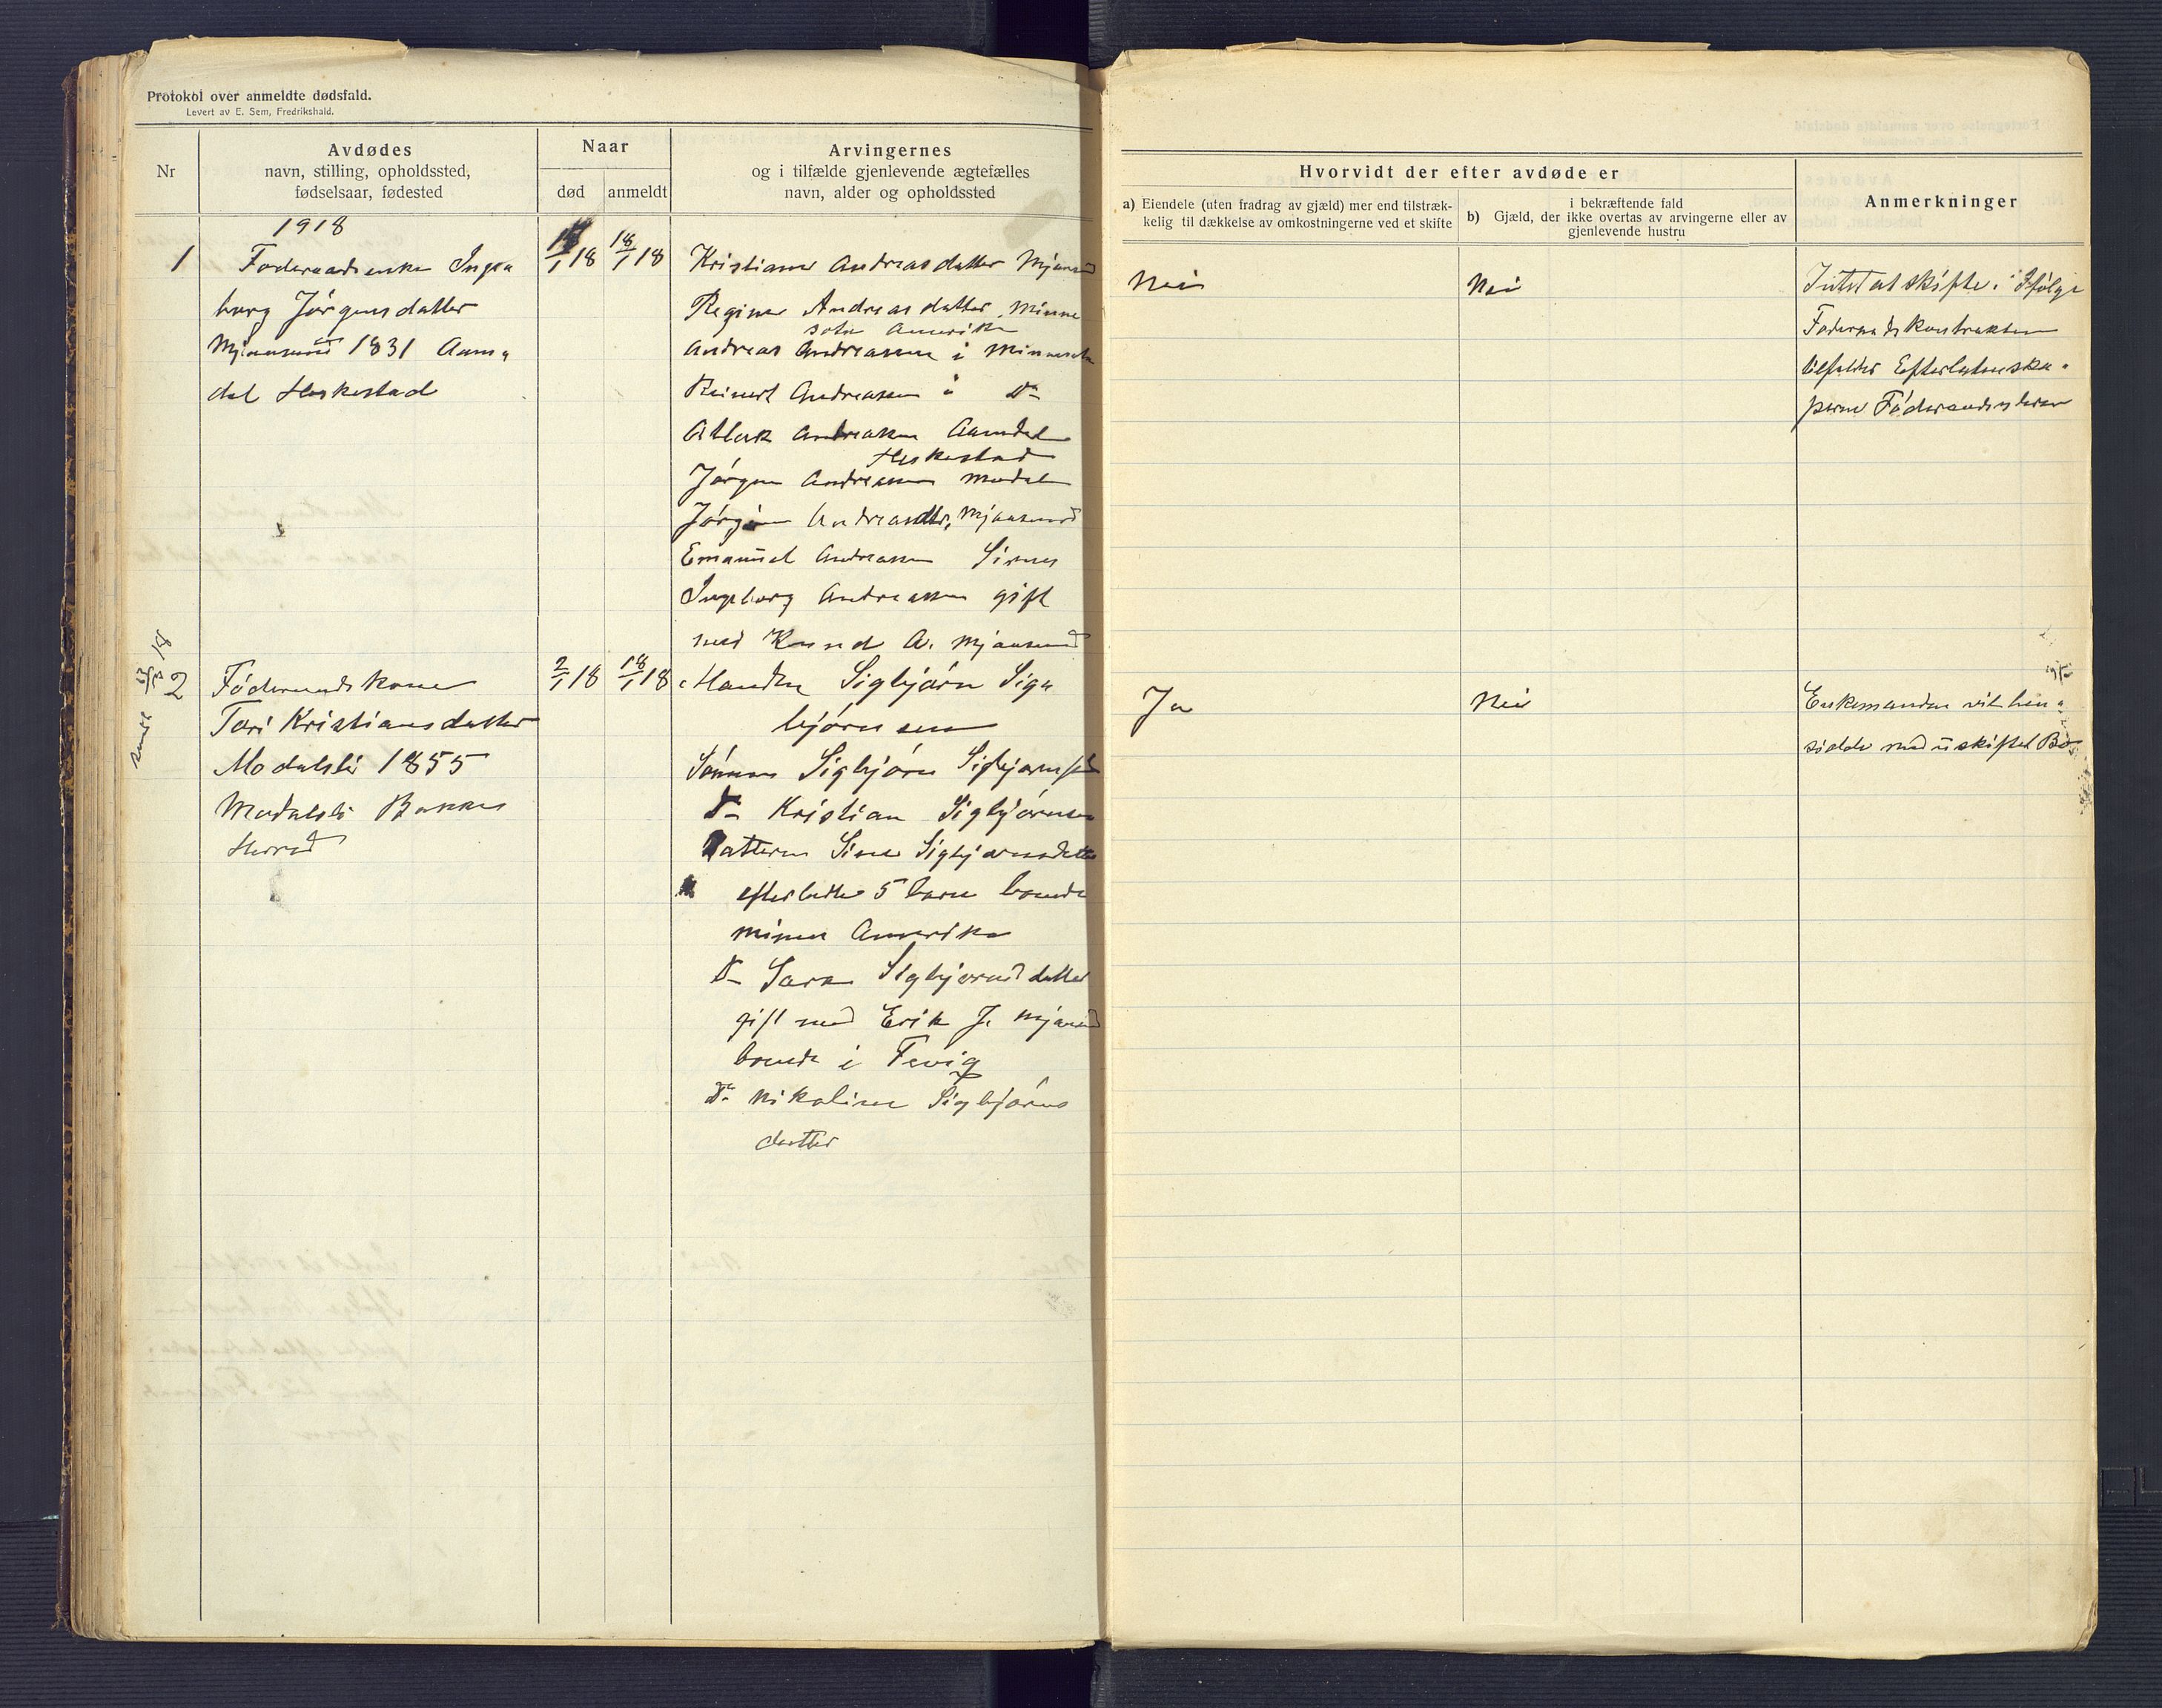 Protokol over anmeldte dødsfald.
Levert av E. Sem, Fredrikshald.
Nr
Avdødes
navn, stilling, opholdssted,
fødselsaar, fødested
Naar
død
anmeldt
Arvingernes
og i tilfælde gjenlevende ægtefælles
navn, alder og opholdssted
Hvorvidt der efter avdøde er
a) Eiendele (uten fradrag av gjæld) mer end tilstræk-
kelig til dækkelse av omkostningerne ved et skifte
i bekræftende fald
b) Gjæld, der ikke overtas av arvingerne eller av
gjenlevende hustru
Anmerkninger
1918
1
Føderaadsenke Inge
borg Jørgensdatter
Mjaasund 1831 Aam
dal Heskestad
/1 18
18/1 18
Kristiane Andreasdatter Mjaasund
Regine Andreasdatter Minne
sota Amerika
Andreas Andreassen i Minnesota
Reinert Andreassen i Do
Atlak Andreassen Aamdal
Heskestad
Jørgen Andreassen Modal
Andreasdtr, Mjaasund
Emanuel Andreassen Sirnes
Ingeborg Andreassen gift
med Knud A. Mjaasund
Nei
Nei
Intet at skifte. Ifølge
Føderaadskontrakten
tilfalder Efterladenska
perne Føderaadsyderen
2
Føderaadskone
Tori Kristiansdatter
Modalsli 1855
Modalsli Bakke
Herred
2/1 18
18/1 18
Manden Sigbjørn Sig
bjørnsen
Sønnen Sigbjørn Sigbjørnsen
Do Kristian Sigbjørnsen
Datteren Sine Sigbjørnsdatter
efterladte 5 barn boende
Amerika
Do Sara Sigbjørnsdatter
gift med Erik J. Mjaasund
boende i Fevig
Do Nikoline Sigbjørns
datter
Ja
Nei
Enkemanden vil hen
sidde med uskiftet Bo